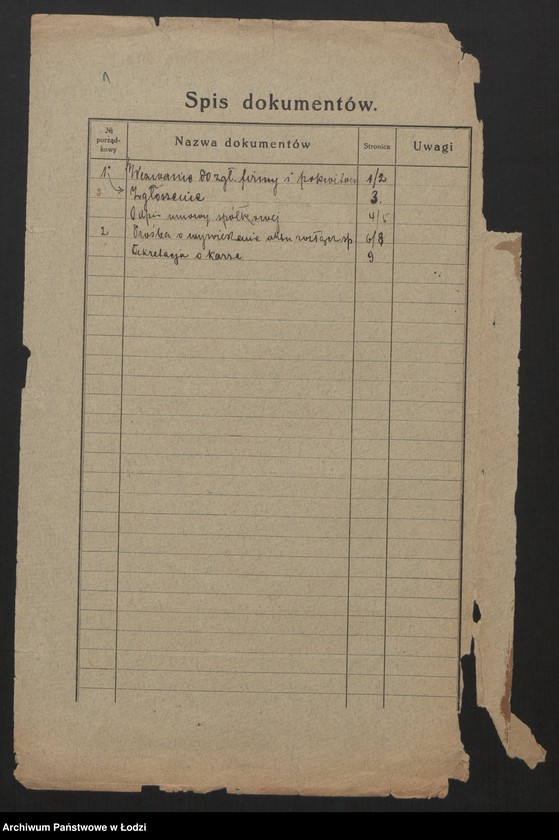 Spis dokumentów.
№ porząd-kowy Nazwa dokumentów Stronica Uwagi
1. Wezwanie do zgł. firmy i 1/2
Zgłoszenie 3.
Odpis umowy spółkowej 4/5
2 Prośba o wywieszenie 6/8
o karze 9
Archiwum Państwowe w Łodzi